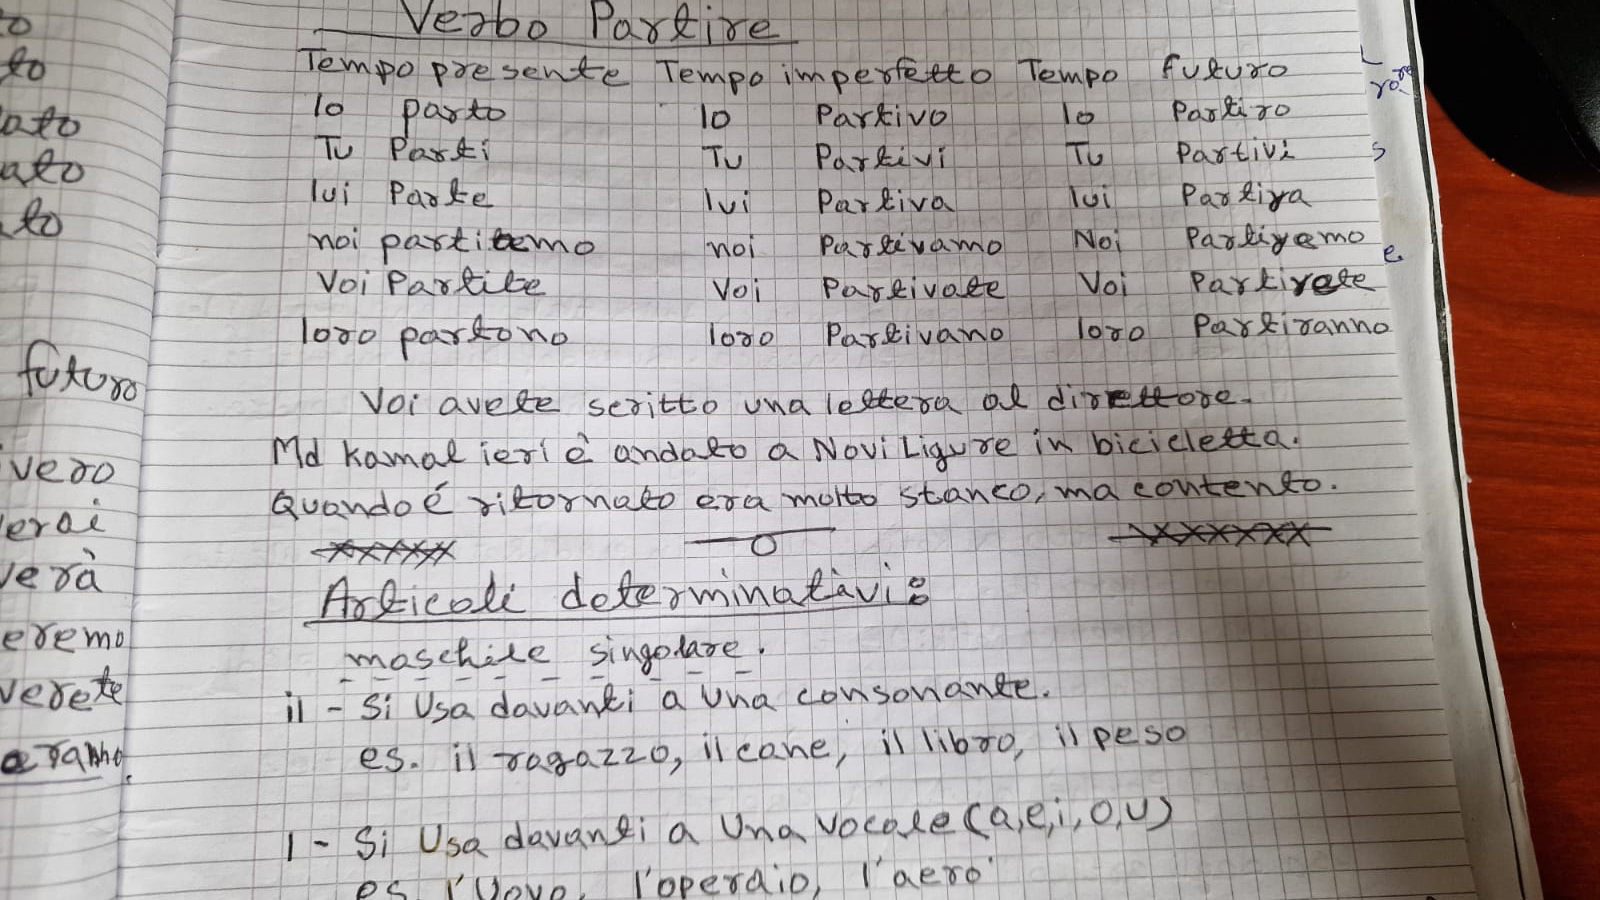 to
to
ato
ato
to
futuro
vero
erai
verà
eremo
verete
eranno.
Verbo Partire
Tempo presente Tempo imperfetto Tempo futuro
Io parto Io Partivo Io Partiro
Tu Parti Tu Partivi Tu Partivi
lui Parte lui Partiva lui Partira
noi partitemo noi Partivamo Noi Partiremo
Voi Partite Voi Partivate Voi Partirete
loro partono loro Partivano loro Partiranno
s
e
Voi avete scritto una lettera al direttore.
Md Kamal ieri è andato a Novi Ligure in bicicletta.
Quando é ritornato era molto stanco, ma contento.
Articoli determinativi:
maschile singolare.
il - Si Usa davanti a Una consonante.
es. il ragazzo, il cane, il libro, il peso
l - Si Usa davanti a Una vocale (a,e,i,o,u)
es l'Uovo, l'operaio, l'aero